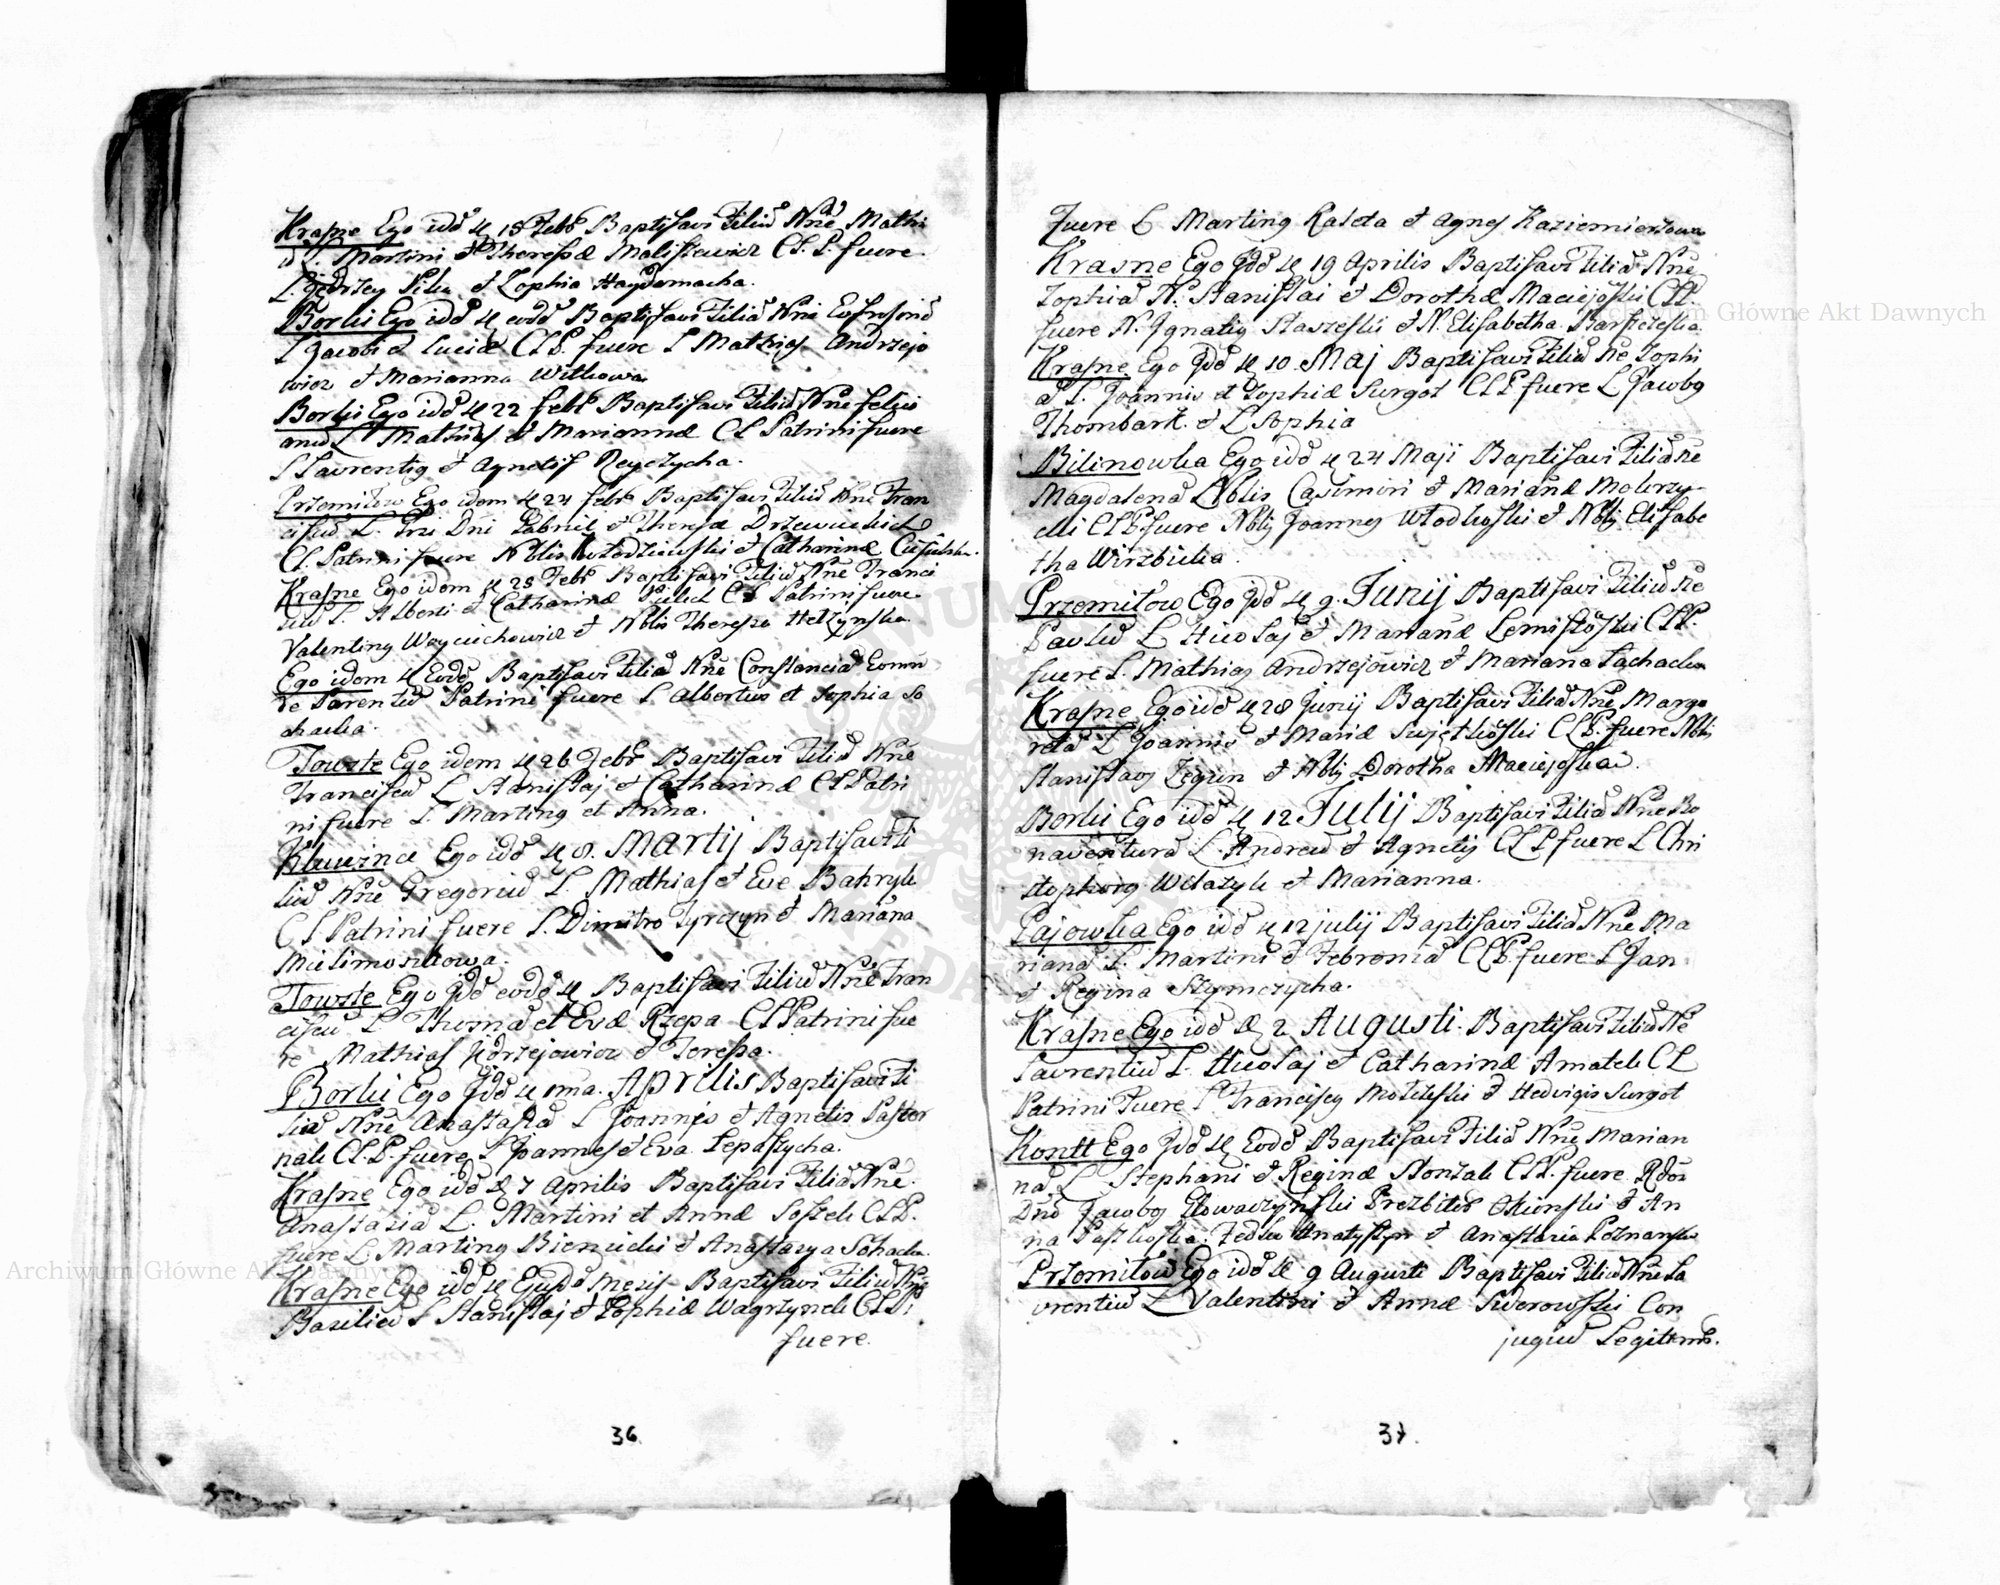 Krasne Ego idē ꝗ 18 Febr Baptisavi Filiū Nñe Mathi
ā L. Martini et Theressæ Malisiewicz C. L. P. fuere
L. Jędrzey Pilu et Zophia Haydemacha.
Borki Ego idē ꝗ eodē Baptisavi Filiā Nñe
L Jacobi et Luciæ C L P. fuere L Mathias Andrzejo
wicz et Marianna Witkowa
Borki Ego idē ꝗ 22 Febr Baptisavi Filiū Nñe Felici
anū L Mathiæ et Mariannæ C L Patrini fuere
L Laurentiq et Agnetis Reyczycha.
Przemiłow Ego idem ꝗ 24 Febr Baptisavi Filiū Nñe Fran
ciscū L. Dni Gabriel et Theresæ Drzewieckich
C L Patrini fuere Nblis Włodziewski et Catharinæ
Krasne Ego idem ꝗ 28 Febr Baptisavi Filiū Nñe Franci
scū L. Alberti et Catharinæ Pielich C L Patrini fuere
Valentinq Woyciechowicz et Nblis Theressa Hetzynska
Ego idem ꝗ Eodē Baptisavi Filiā Nñe Constanciā Eorun
de Parentū Patrini fuere L Albertus et Sophia So
chacka.
Towste Ego idem ꝗ 26 Febr Baptisavi Filiū Nñe
Franciscū L Stanislaj et Catharinæ C L Patri
ni fuere L. Martinq et Anna.
Klwince Ego idē ꝗ 8. Martij Baptisavi Fi
liū Nñe Gregoriū L. Mathias et Eve Bahryk
C L Patrini fuere L. Dimitro Tyrczyn et Mariana
Maksimoszkowa.
Towste Ego Jdē eodē ꝗ Baptisavi Filiū Nñe Fran
ciscū L Thomæ et Evæ Rzepa C L Patrini fue
re Mathias Jędrzejowicz et Teressa.
Borki Ego Jdē ꝗ 1ma. Aprilis Baptisavi Fi
liā Nñe Anastasiā L Joannis et Agnetis Paster
nak C L. P. fuere L Joannes et Eva Lepaszycha.
Krasne Ego idē ꝗ 7 Aprilis Baptisavi Filiā Nñe.
Anastasiā L. Martini et Annæ Soszek C L P.
fuere L Martinq Bieniecki et Anastazya Sohacka.
Krasne Ego idē ꝗ Ejusdē Mesis Baptisavi Filiū Nñe
Basiliū L Stanislaj et Zophiæ Wagrzynek C L P.
fuere.
36.
Fuere L Martinq Kaleta et Agnes Kaziemierzowa
Krasne Ego Jdē ꝗ 19 Aprilis Baptisavi Filiā Nñe
Zophiā N. Stanislai et Dorothæ Maciejoski C L P.
fuere N. Jgnatiq Staszeski et N. Elisabetha Barszczeska.
Krasne Ego Jdē ꝗ 10 Maj Baptisavi Filiā Ne Zophi
ā L. Joannis et Zophiæ Surgot C L P fuere L Jacobq
Thombark. et L Sophia
Bilinowka Ego idē ꝗ 24 Maji Baptisavi Filiā Ne
Magdalenā Nblis Casimiri et Mariānæ Mokrzy
cki C L P fuere Nblj Joannes Włodkoski et Nblj Elisabe
tha Wirzbicka.
Przemiłow Ego Jdē ꝗ 9. Junij Baptisavi Filiū Ne
Pavlū L Nicolaj et Mariānæ Lemiszoski C L P.
fuere L. Mathias Andrzejowicz et Mariana Łachacka
Krasne Ego idē ꝗ 28 Junij Baptisavi Filiā Nñe Marga
retā L Joannis et Mariæ Swjętkoski C L P. fuere Nblj
Stanislaus Zegun et Nblj Dorotha Maciejoska.
Borki Ego idē ꝗ 12 Julij Baptisavi Filiā Nñe Bo
naventurā L. Andreæ et Agnetis C L P fuere L Chri
stophorq Witazyk et Marianna.
Pajowka Ego idē ꝗ 12 julij Baptisavi Filiā Nñe Ma
rianā L. Martini et Febroniæ C L P. fuere L Jan
et Regina Szymczycha.
Krasne Ego idē ꝗ 2 Augusti. Baptisavi Filiū Ne
Laurentiū L. Nicolaj et Catharinæ Amatek C L
Patrini Fuere L. Franciscq Moszeski et Hedvigis Surgot
Kontt Ego Jdē ꝗ Eodē Baptisavi Filiā Nñe Marian
nā L Stephani et Reginæ Slonzak C L P. fuere Rdus
Dno Jacobq Głowaczynski Prezbiter Okienski et An
na Paszkoska. Fedko Hnatyszyn et Anastazia Poznanska
Przemiłow Ego idē ꝗ 9 Augusti Baptisavi Filiū Nñe La
vrentiū L Valentini et Annæ Swerowski Con
jugiū Legitimō.
37.
Archiwum Główne Akt Dawnych
Archiwum Główne Akt Dawnych